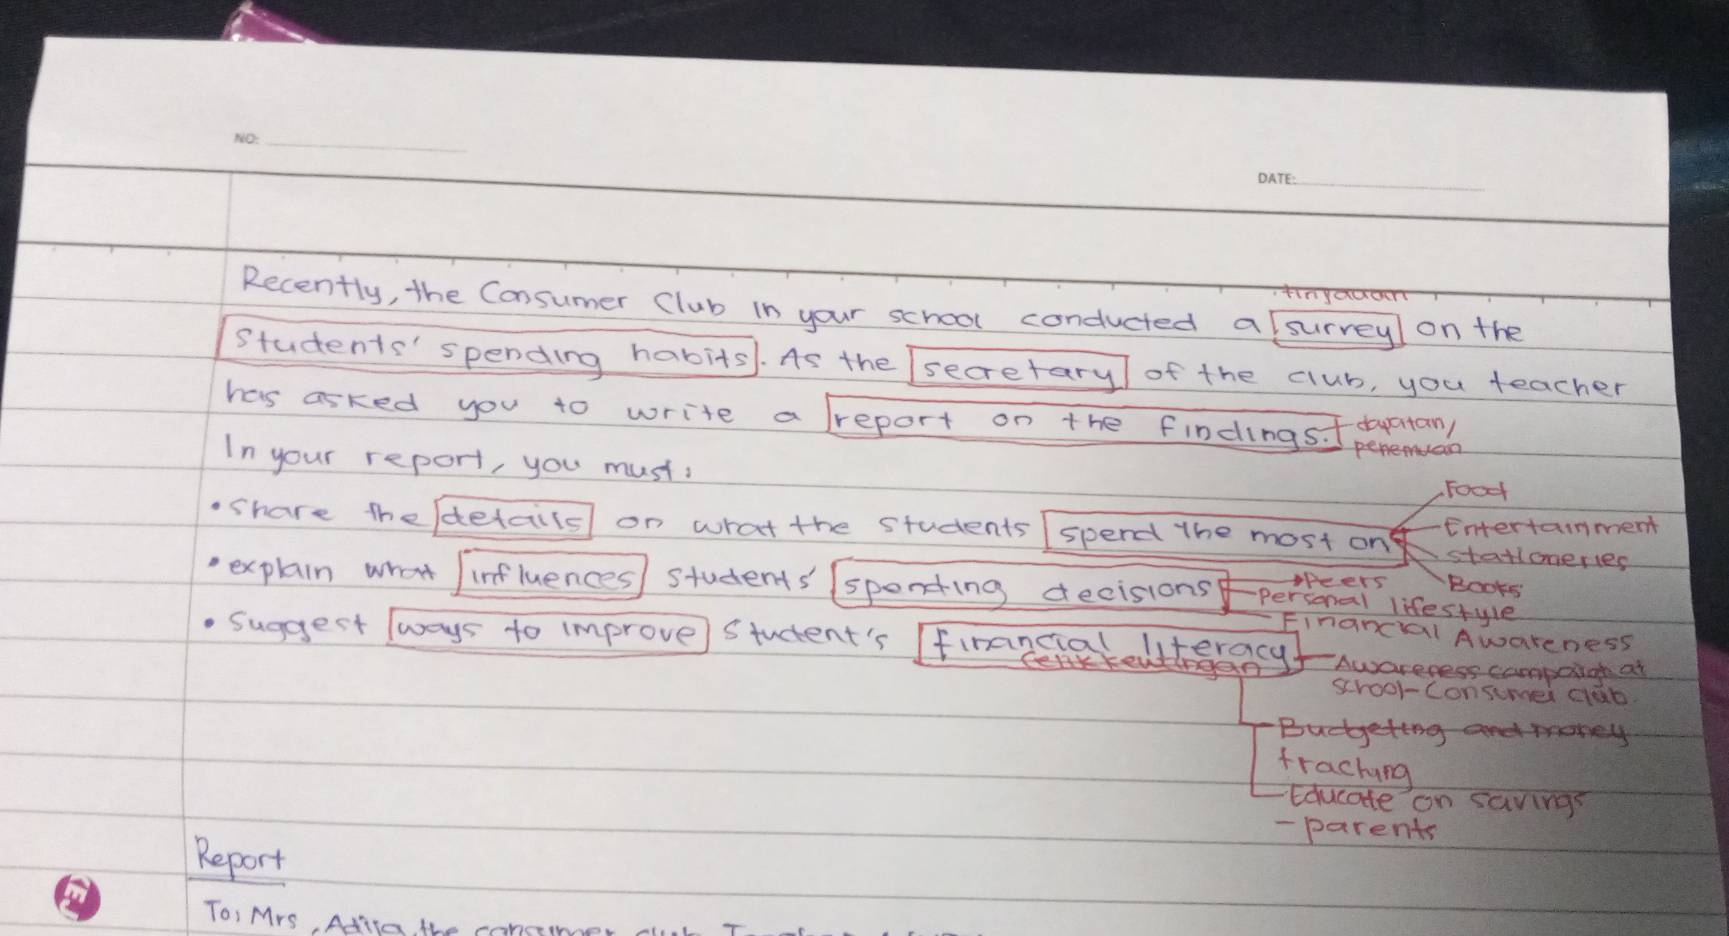 NO:
DATE:
Recently, the Consumer Club in your school conducted a survey on the
tinjauan
students' spending habits. As the secretary of the club, you teacher
has asked you to write a report on the findings.
dapatan/
penemuan
In your report, you must:
• share the details on what the students spend the most on
Food
Entertainment
stationeries
Books
• explain what influences students' spending decisions
Peers
Personal lifestyle
Financial Awareness
• Suggest ways to improve student's financial literacy
Awareness campaign at
school - Consumer club
Budgeting and money
traching
Educate on savings
- parents
Report
To: Mrs. the consumer club